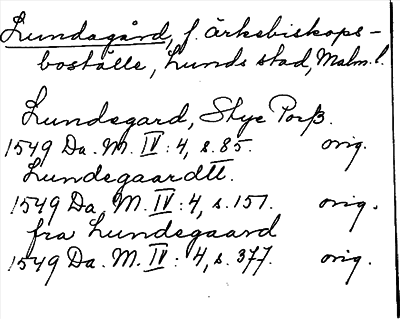 Lundagård, f. ärkebiskops-
boställe, Lunds stad, Malm. l.
Lundsgard, Stye Porß.
1549 Da. M. IV: 4, s. 85. orig.
Lundegaardtt.
1549 Da. M. IV: 4, s. 151. orig.
fra Lundsgaard
1549 Da. M. IV: 4, s. 377. orig.